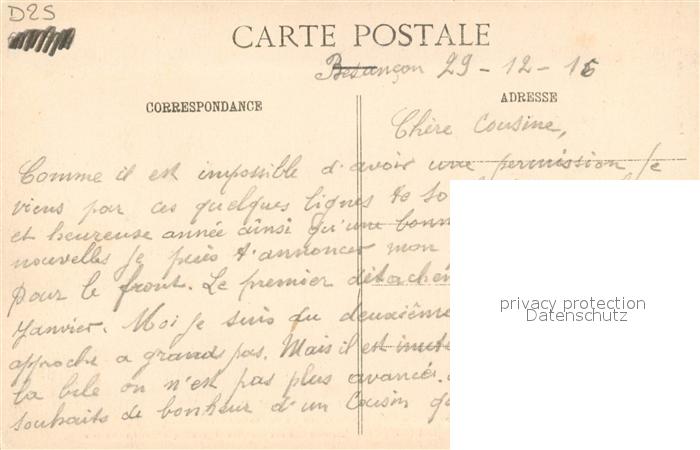 D25
CARTE POSTALE
Besançon 29-12-15
CORRESPONDANCE
ADRESSE
Chère Cousine,
Comme il est impossible d'avoir une permission Je
viens par ces quelques lignes te so
et heureuse année ainsi qu'une bonn
nouvelles Je puis t'annoncer mon
pour le front. Le premier détachem
Janvier. Moi Je suis du deuxième
approche a grands pas. Mais il est inute
la bile on n'est pas plus avancé.
souhaits de bonheur d'un Cousin qu
privacy protection
Datenschutz